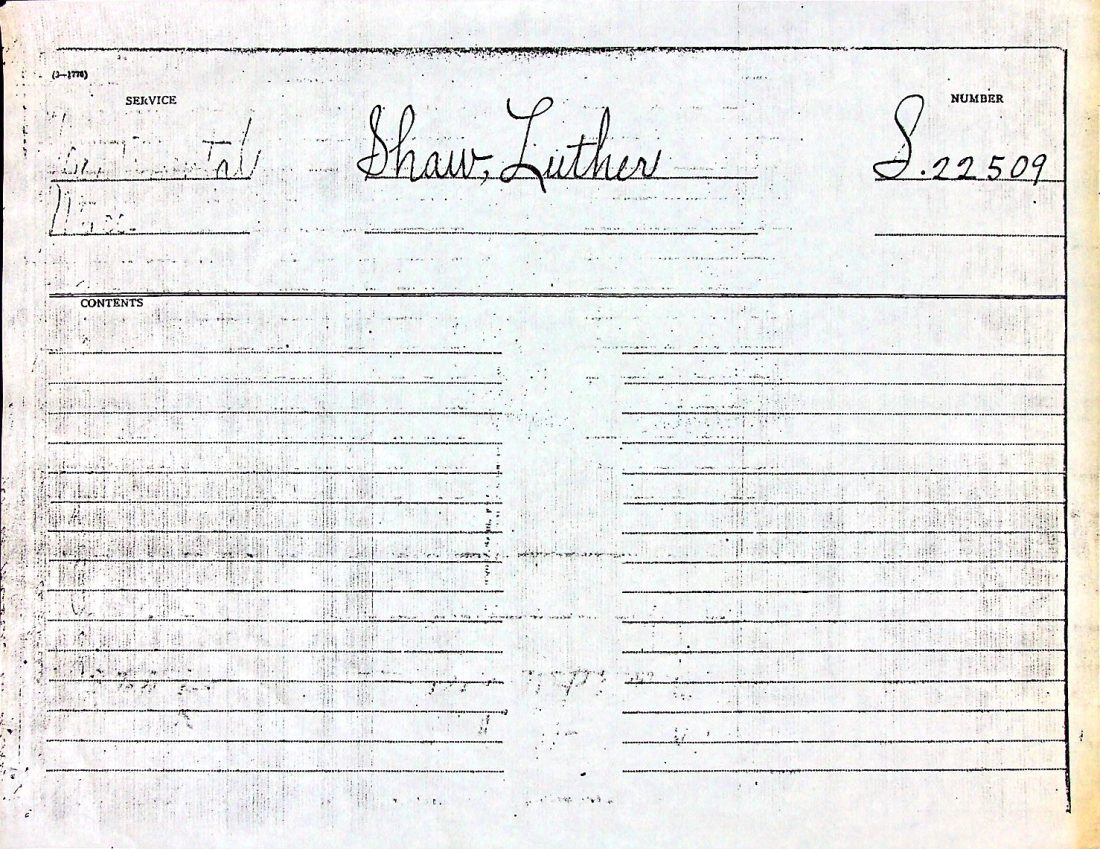 (3—1776)
SERVICE
NUMBER
Continental Shaw, Luther S. 22509
Mass
CONTENTS